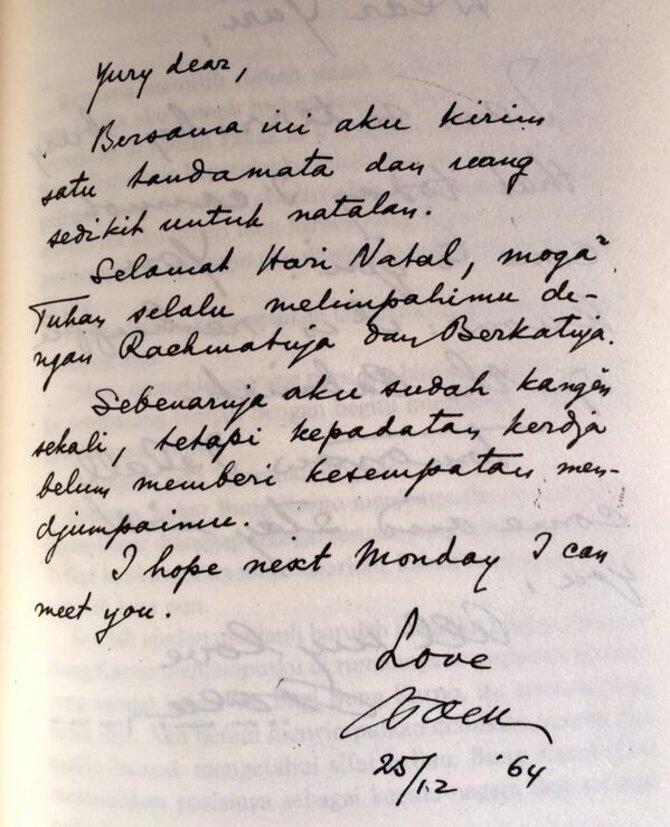 Yury dear,
Bersama ini aku kirim
satu tandamata dan uang
sedikit untuk natalan.
Selamat Hari Natal, moga²
Tuhan selalu melimpahimu de-
ngan Rachmatnja dan Berkatnja.
Sebenarnja aku sudah kangèn
sekali, tetapi kepadatan kerdja
belum memberi kesempatan men-
djumpaimu.
I hope next Monday I can
meet you.
Love
25/12 '64